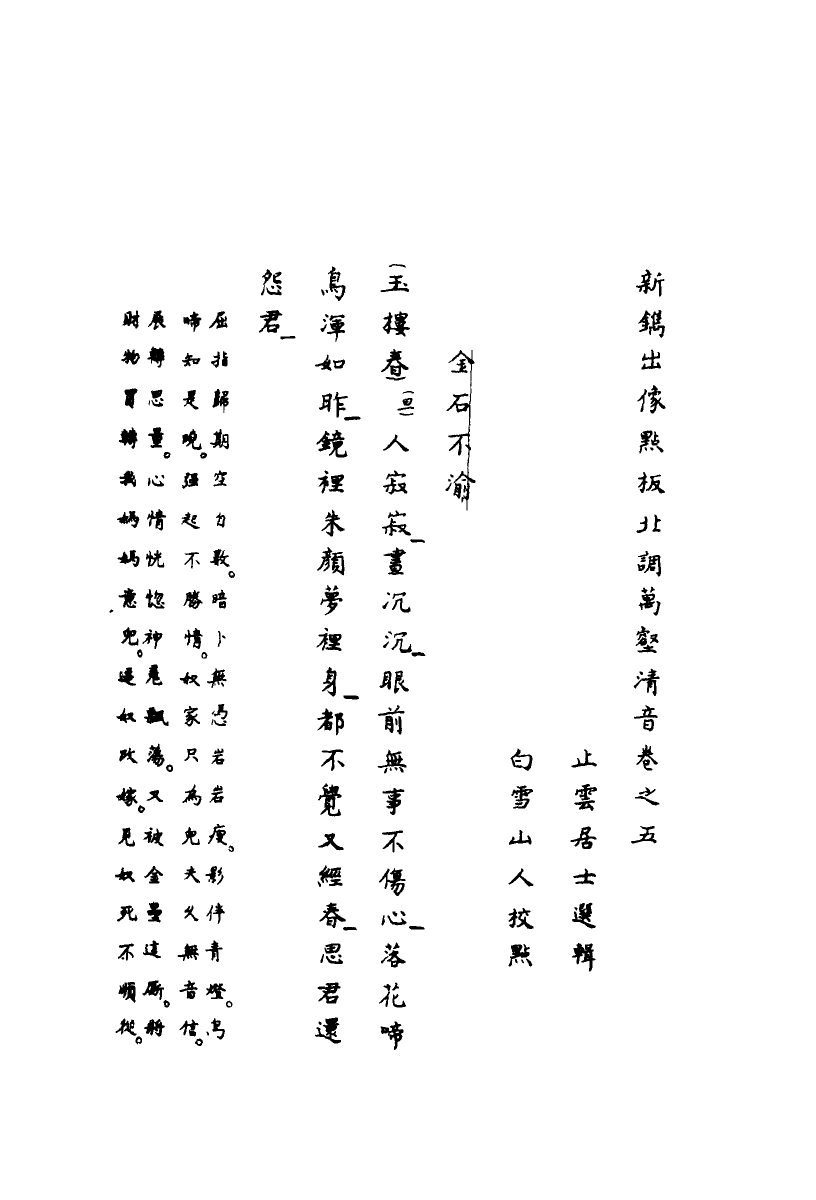 新鐫出像點板北調萬壑清音卷之五
止雲居士選輯
白雪山人校點
金石不渝
（玉樓春）（旦）人寂寂晝沉沉眼前無事不傷心落花啼
鳥渾如昨鏡裡朱顏夢裡身都不覺又經春思君還
怨君
屈指歸期空自数。暗卜無憑岩岩瘦。影伴青燈。鳥
啼知是晚。强起不勝情。奴家只為兒夫久無音信。
展轉思量。心情恍惚神思飄蕩。又被金晏這厮。將
財物買轉我媽媽意兒。逼奴改嫁。見奴死不順從。